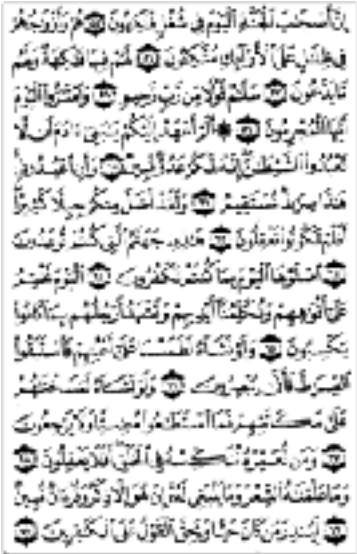 إِنَّ أَصْحَٰبَ ٱلْجَنَّةِ ٱلْيَوْمَ فِى شُغُلٍ فَٰكِهُونَ ۝٥٥ هُمْ وَأَزْوَٰجُهُمْ
فِى ظِلَٰلٍ عَلَى ٱلْأَرَآئِكِ مُتَّكِـُٔونَ ۝٥٦ لَهُمْ فِيهَا فَٰكِهَةٌ وَلَهُم
مَّا يَدَّعُونَ ۝٥٧ سَلَٰمٌ قَوْلًا مِّن رَّبٍّ رَّحِيمٍ ۝٥٨ وَٱمْتَٰزُوا۟ ٱلْيَوْمَ
أَيُّهَا ٱلْمُجْرِمُونَ ۝٥٩ ۞ أَلَمْ أَعْهَدْ إِلَيْكُمْ يَٰبَنِىٓ ءَادَمَ أَن لَّا
تَعْبُدُوا۟ ٱلشَّيْطَٰنَ إِنَّهُۥ لَكُمْ عَدُوٌّ مُّبِينٌ ۝٦٠ وَأَنِ ٱعْبُدُونِى
هَٰذَا صِرَٰطٌ مُّسْتَقِيمٌ ۝٦١ وَلَقَدْ أَضَلَّ مِنكُمْ جِبِلًّا كَثِيرًا
أَفَلَمْ تَكُونُوا۟ تَعْقِلُونَ ۝٦٢ هَٰذِهِۦ جَهَنَّمُ ٱلَّتِى كُنتُمْ تُوعَدُونَ
۝٦٣ ٱصْلَوْهَا ٱلْيَوْمَ بِمَا كُنتُمْ تَكْفُرُونَ ۝٦٤ ٱلْيَوْمَ نَخْتِمُ
عَلَىٰٓ أَفْوَٰهِهِمْ وَتُكَلِّمُنَآ أَيْدِيهِمْ وَتَشْهَدُ أَرْجُلُهُم بِمَا كَانُوا۟
يَكْسِبُونَ ۝٦٥ وَلَوْ نَشَآءُ لَطَمَسْنَا عَلَىٰٓ أَعْيُنِهِمْ فَٱسْتَبَقُوا۟
ٱلصِّرَٰطَ فَأَنَّىٰ يُبْصِرُونَ ۝٦٦ وَلَوْ نَشَآءُ لَمَسَخْنَٰهُمْ
عَلَىٰ مَكَانَتِهِمْ فَمَا ٱسْتَطَٰعُوا۟ مُضِيًّا وَلَا يَرْجِعُونَ
۝٦٧ وَمَن نُّعَمِّرْهُ نُنَكِّسْهُ فِى ٱلْخَلْقِ أَفَلَا يَعْقِلُونَ ۝٦٨
وَمَا عَلَّمْنَٰهُ ٱلشِّعْرَ وَمَا يَنۢبَغِى لَهُۥٓ إِنْ هُوَ إِلَّا ذِكْرٌ وَقُرْءَانٌ مُّبِينٌ
۝٦٩ لِّيُنذِرَ مَن كَانَ حَيًّا وَيَحِقَّ ٱلْقَوْلُ عَلَى ٱلْكَٰفِرِينَ ۝٧٠